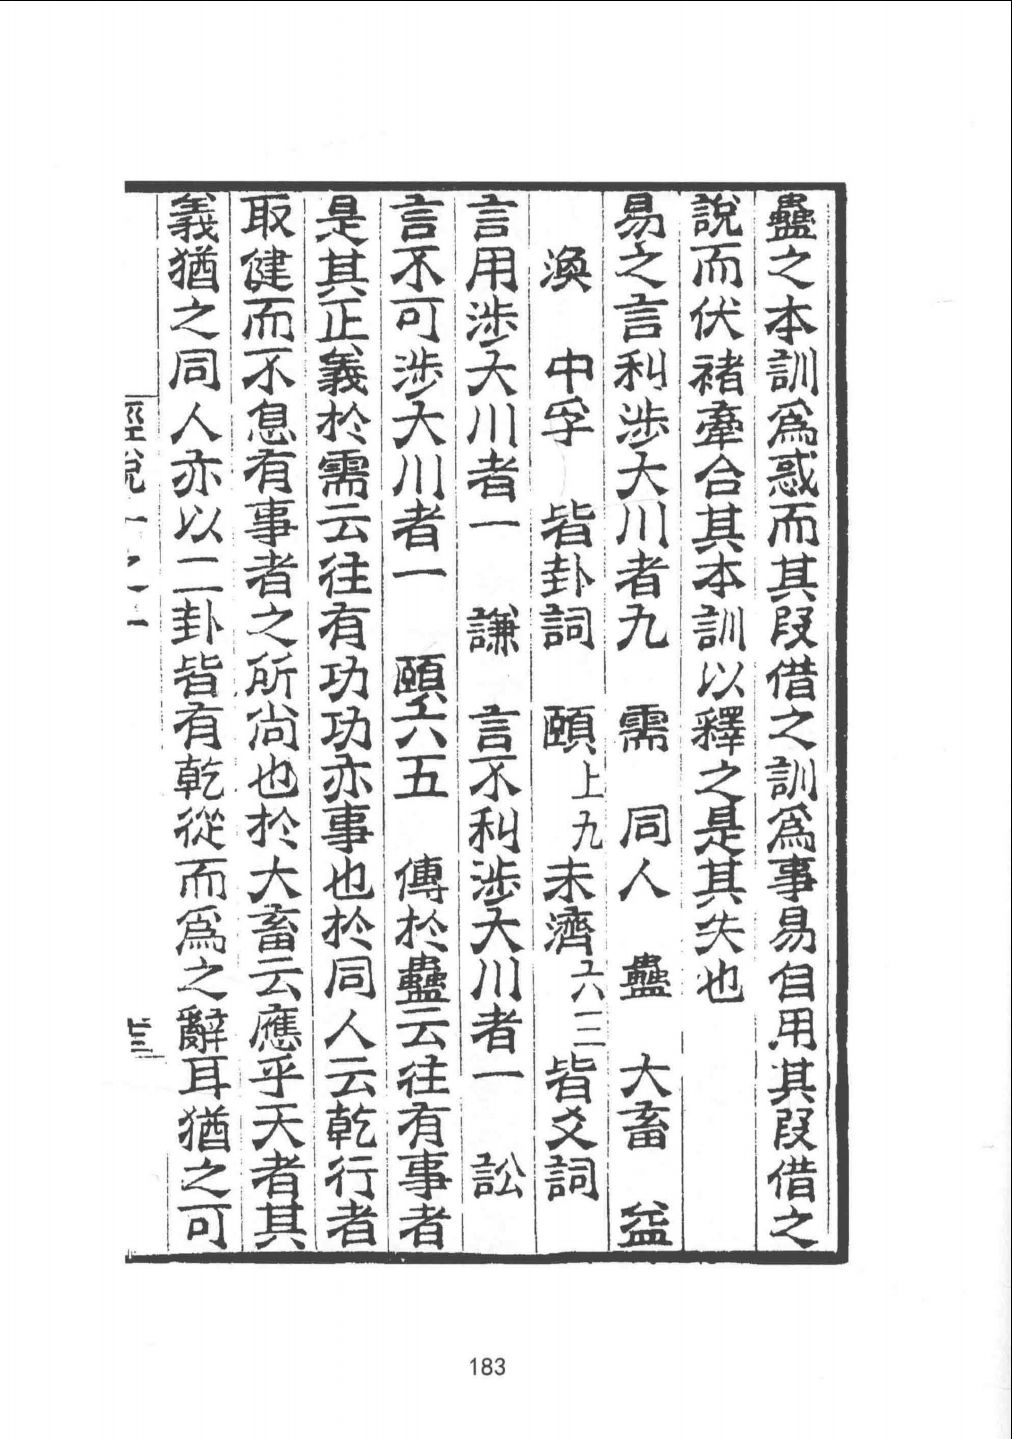 蠱之本訓爲惑而其叚借之訓爲事易自用其叚借之
說而伏褚牽合其本訓以釋之是其失也
易之言利涉大川者九　需　同人　蠱　大畜　益
渙　中孚　皆卦詞　頤上九未濟六三皆爻詞
言用涉大川者一　謙　言不利涉大川者一　訟
言不可涉大川者一　頤六五　傳於蠱云往有事者
是其正義於需云往有功功亦事也於同人云乾行者
取健而不息有事者之所尚也於大畜云應乎天者其
義猶之同人亦以二卦皆有乾從而爲之辭耳猶之可
經說一之二
183